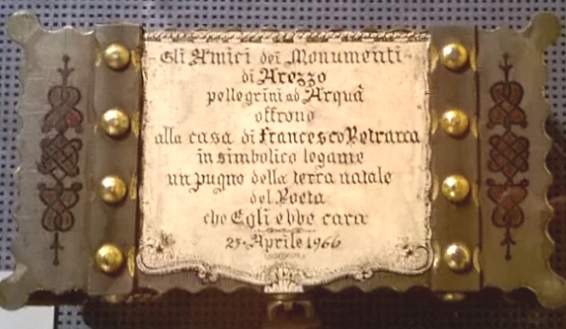 Gli Amici dei Monumenti
di Arezzo
pellegrini ad Arquà
offrono
alla casa di Francesco Petrarca
in simbolico legame
un pugno della terra natale
del Poeta
che Egli ebbe cara
25 · Aprile 1966